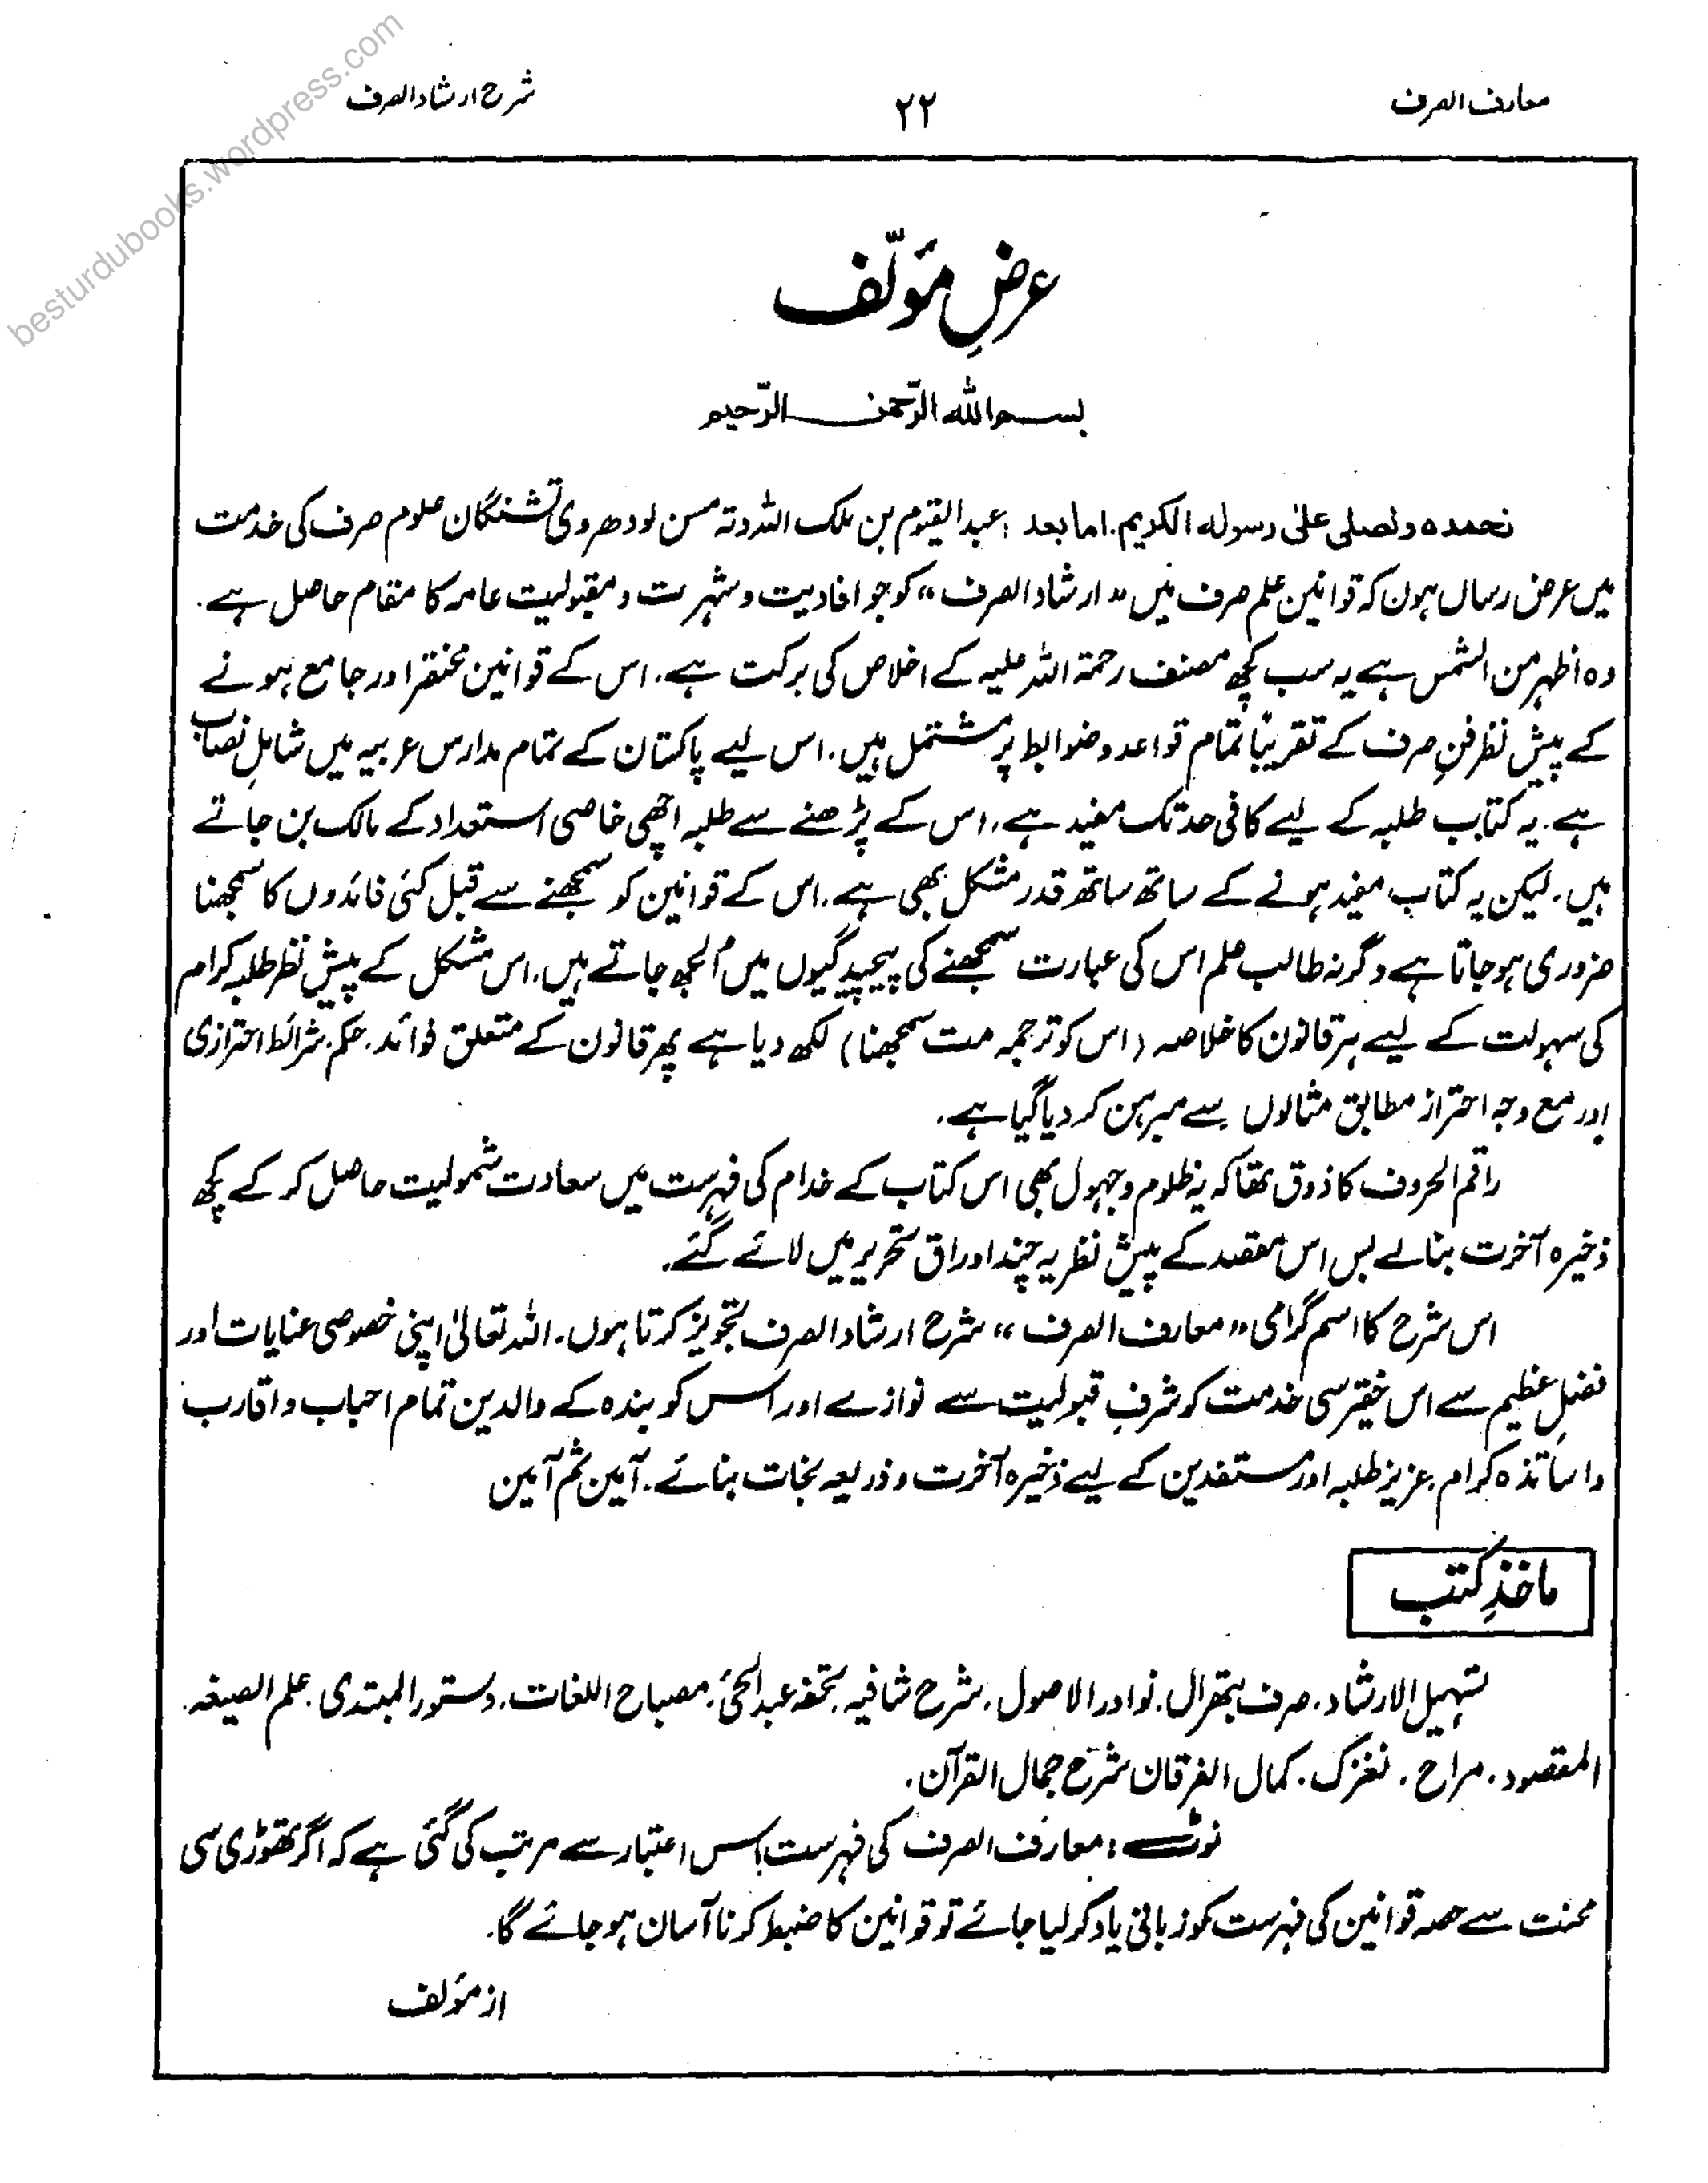 معارف الصرف
۲۲
شرح ارشاد الصرف
besturdubooks.wordpress.com
عرضِ مؤلّف
بسم الله الرّحمن الرّحيم
نحمده ونصلی علیٰ رسوله الکریم. اما بعد : عبدالقیوم بن ملک اللہ دتہ مسن لودھروی تشنگان علوم صرف کی خدمت
میں عرض رساں ہوں کہ قوانین علم صرف میں "ارشاد الصرف" کو جو افادیت و شہرت و مقبولیت عامہ کا مقام حاصل ہے.
وہ اظہر من الشمس ہے یہ سب کچھ مصنف رحمۃ اللہ علیہ کے اخلاص کی برکت ہے. اس کے قوانین مختصر اور جامع ہونے
کے پیش نظر فنِ صرف کے تقریباً تمام قواعد و ضوابط پر مشتمل ہیں. اس لیے پاکستان کے تمام مدارس عربیہ میں شاملِ نصاب
ہے. یہ کتاب طلبہ کے لیے کافی حد تک مفید ہے. اس کے پڑھنے سے طلبہ اچھی خاصی استعداد کے مالک بن جاتے
ہیں. لیکن یہ کتاب مفید ہونے کے ساتھ ساتھ قدر مشکل بھی ہے. اس کے قوانین کو سمجھنے سے قبل کئی فائدوں کا سمجھنا
ضروری ہو جاتا ہے وگرنہ طالب علم اس کی عبارت سمجھنے کی پیچیدگیوں میں اُلجھ جاتے ہیں. اس مشکل کے پیش نظر طلبہ کرام
کی سہولت کے لیے ہر قانون کا خلاصہ (اس کو ترجمہ مت سمجھنا) لکھ دیا ہے پھر قانون کے متعلق فوائد. حکم. شرائط احترازی
اور مع وجہ احتراز مطابق مثالوں سے مبرہن کر دیا گیا ہے.
راقم الحروف کا ذوق تھا کہ یہ ظلوم و جہول بھی اس کتاب کے خدام کی فہرست میں سعادت شمولیت حاصل کر کے کچھ
ذخیرہ آخرت بنالے بس اس مقصد کے پیش نظر یہ چند اوراق تحریر میں لائے گئے.
اس شرح کا اسم گرامی "معارف الصرف" شرح ارشاد الصرف تجویز کرتا ہوں. اللہ تعالیٰ اپنی خصوصی عنایات اور
فضلِ عظیم سے اس حقیر سی خدمت کو شرفِ قبولیت سے نوازے اور اس کو بندہ کے والدین تمام احباب و اقارب
و اساتذہ کرام. عزیز طلبہ اور مستفدین کے لیے ذخیرہ آخرت و ذریعہ نجات بنائے. آمین ثم آمین
ماخذِ کتب
تسہیل الارشاد. صرف بھترال. نوادر الاصول. شرح شافیہ. تحفہ عبدالحیٔ. مصباح اللغات. دستور المبتدی. علم الصیغہ.
المقصود. مراح. نغزک. کمال الفرقان شرح جمال القرآن.
نوٹ : معارف الصرف کی فہرست اس اعتبار سے مرتب کی گئی ہے کہ اگر تھوڑی سی
محنت سے حصہ قوانین کی فہرست کو زبانی یاد کر لیا جائے تو قوانین کا ضبط کرنا آسان ہو جائے گا.
از مؤلف